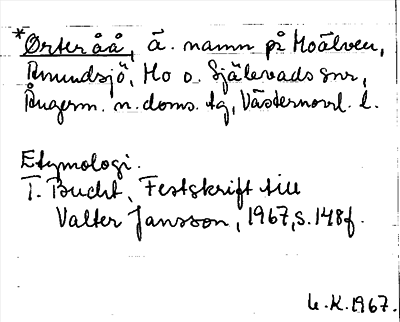 *Ørteråå, ä. namn på Moälven,
Anundsjö, Mo o. Själevads snr,
Ångerm. n. doms. tg, Västernorrl. l.
Etymologi.
T. Bucht, Festskrift till
Valter Jansson, 1967, s. 148f.
U.K. 1967.